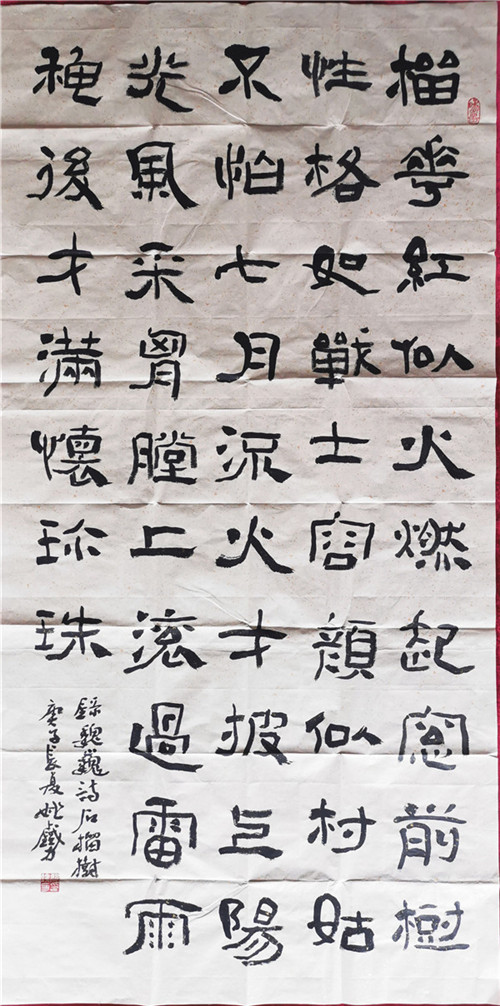 榴華紅似火燃起窓前樹
性格如戰士容顏似村姑
不怕七月流火才披陽
光風采胷膛上滚過雷雨
穐後才滿懷珎珠
錄魏巍詩石榴樹
庚子長夏姚